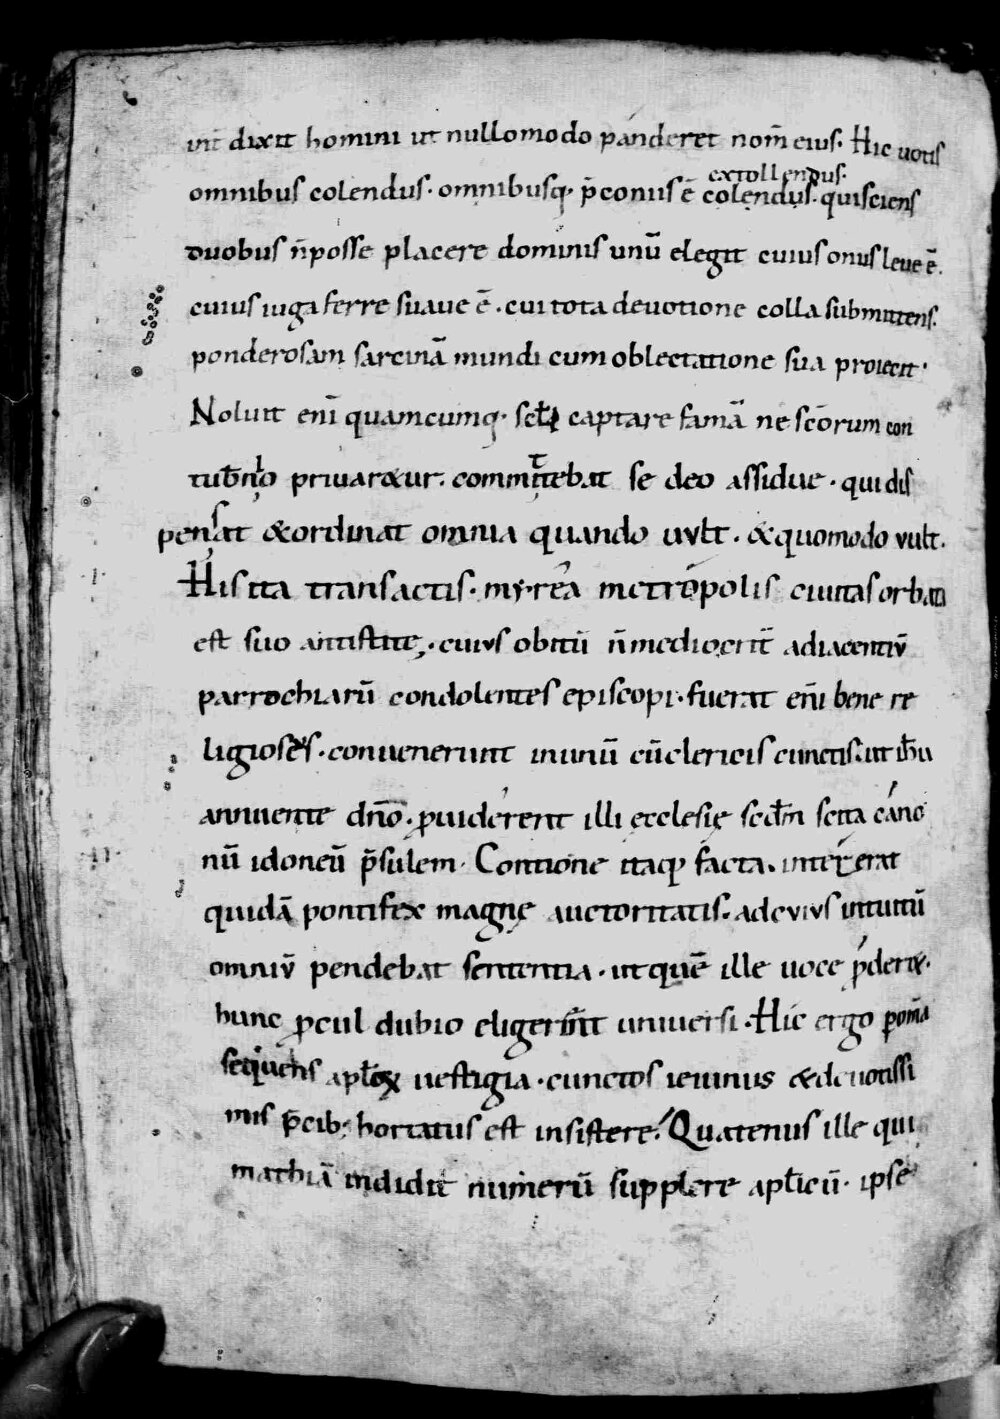 int̄ dixit homini ut nullomodo panderet nom̄ eius. Hic uotis
extollendus.
omnibus colendus. omnibusq. p̄coniis ē colendus. quisciens
duobus n̄posse placere dominis unū elegit cuius onus leue ē.
cuius iuga ferre suaue ē. cui tota deuotione colla submittens.
ponderosam sarcinā mundi cum oblectatione sua proiecit.
Noluit enī quamcumq. captare famā ne sc̄orum con
priuaraeur. committebat se deo assidue. qui dis
pensat &ordinat omnia quando uult. &quomodo uult.
His ita transactis. myrea metropolis ciuitas orba
est suo antistite. cuius obitū n̄ mediocrit̄ adiacentiū
parrochiarū condolentes episcopi. fuerat enī bene re
ligiosus. conuenerunt inunū cū clericis cunctis. ut ih̄u
annuente dn̄o. ꝓuiderent illi ecclesię scd̄m scita cano
nū idoneū p̄sulem. Contione itaq; facta. intererat
quidā pontifex magnę auctoritatis. adcuius intuitū
omniū pendebat sententia. ut quē ille uoce ꝓder&.
hunc ꝓcul dubio eligerent uniuersi. Hic ergo ꝑomīa
sequens apl̄oꝝ uestigia. cunctos ieiuniis &deuotissi
mis p̄cib; hortatus est insistere. Quatenus ille qui
mathiā indidit numerū supplere apl̄icū. ipse